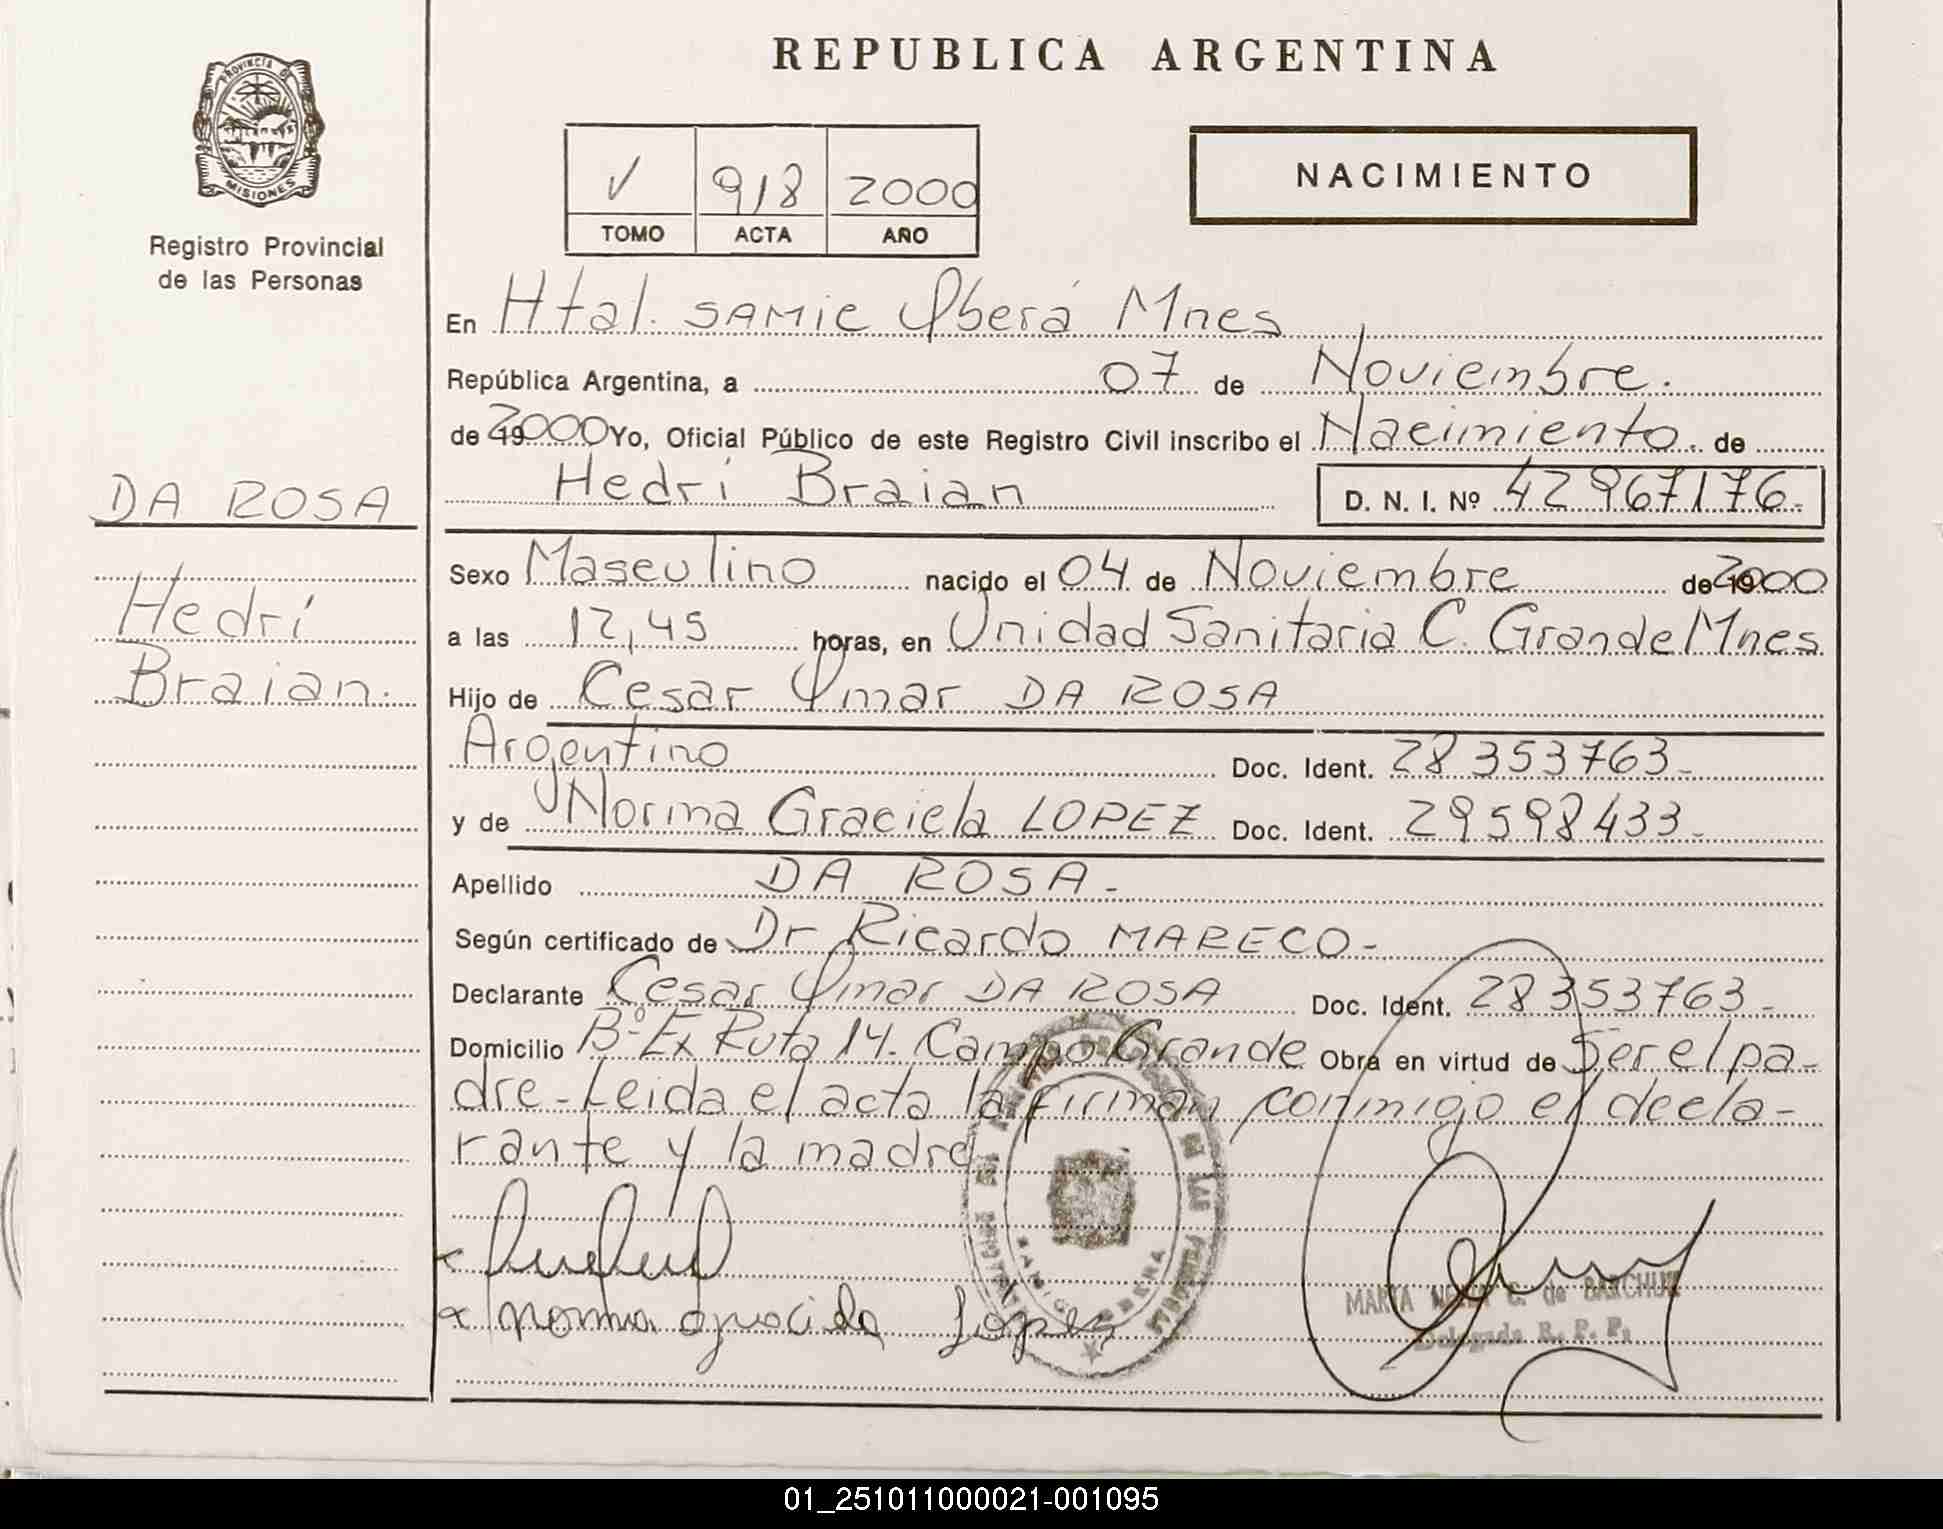 REPUBLICA ARGENTINA
PROVINCIA DE
MISIONES
Registro Provincial
de las Personas
V 918 2000
TOMO ACTA AÑO
NACIMIENTO
En Htal. SAMIC Oberá Mnes
República Argentina, a 07 de Noviembre.
de 2000 Yo, Oficial Público de este Registro Civil inscribo el Nacimiento de
Hedrí Braian D. N. I. Nº 42967176.-
DA ROSA
Hedrí
Braian.
Sexo Masculino nacido el 04 de Noviembre de 2000
a las 12,45 horas, en Unidad Sanitaria C. Grande Mnes
Hijo de Cesar Omar DA ROSA
Argentino Doc. Ident. 28353763-
y de Norma Graciela LOPEZ Doc. Ident. 29598433-
Apellido DA ROSA-
Según certificado de Dr Ricardo MARECO-
Declarante Cesar Omar DA ROSA Doc. Ident. 28353763-
Domicilio Bº Ex Ruta 14. Campo Grande Obra en virtud de Ser el pa-
dre-Leida el acta la firman conmigo el decla-
rante y la madre
Norma Graciela Lopez
MARTA C. de
Delegada R. P. P.
01_251011000021-001095